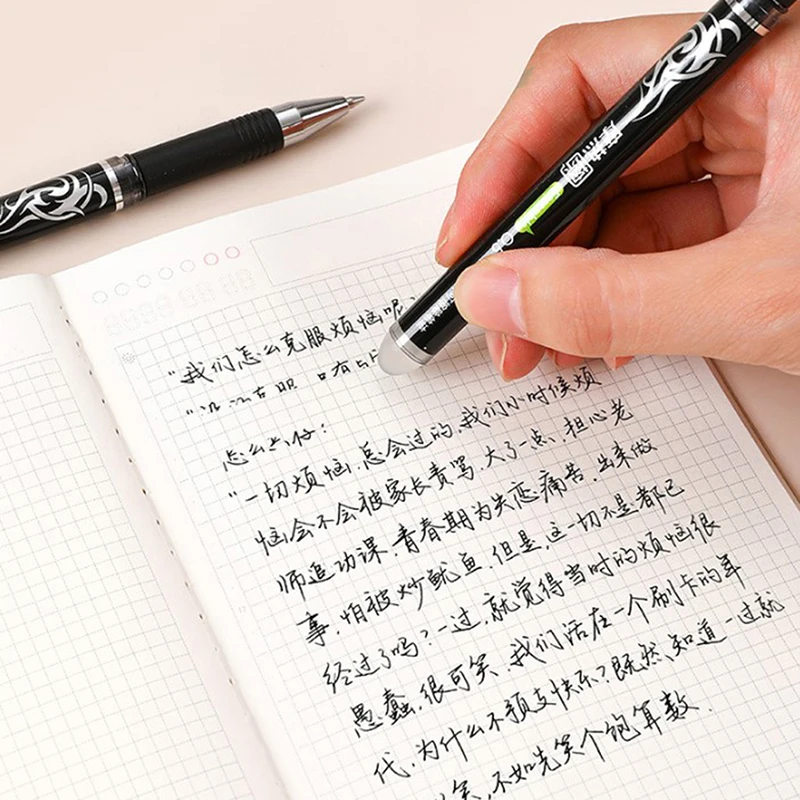 "我们怎么克服烦恼呢
怎么
"一切烦恼,总会过的,我们小时候烦
恼会不会被家长责骂,大了一点,担心老
师追功课,青春期为失恋痛苦,出来做
事,怕被炒鱿鱼,但是,这一切不是都已
经过了吗?一过,就觉得当时的烦恼很
愚蠢,很可笑,我们活在一个刷卡的年
代,为什么不预支快乐?既然,知道一过就
笑,不如先笑个饱算数.